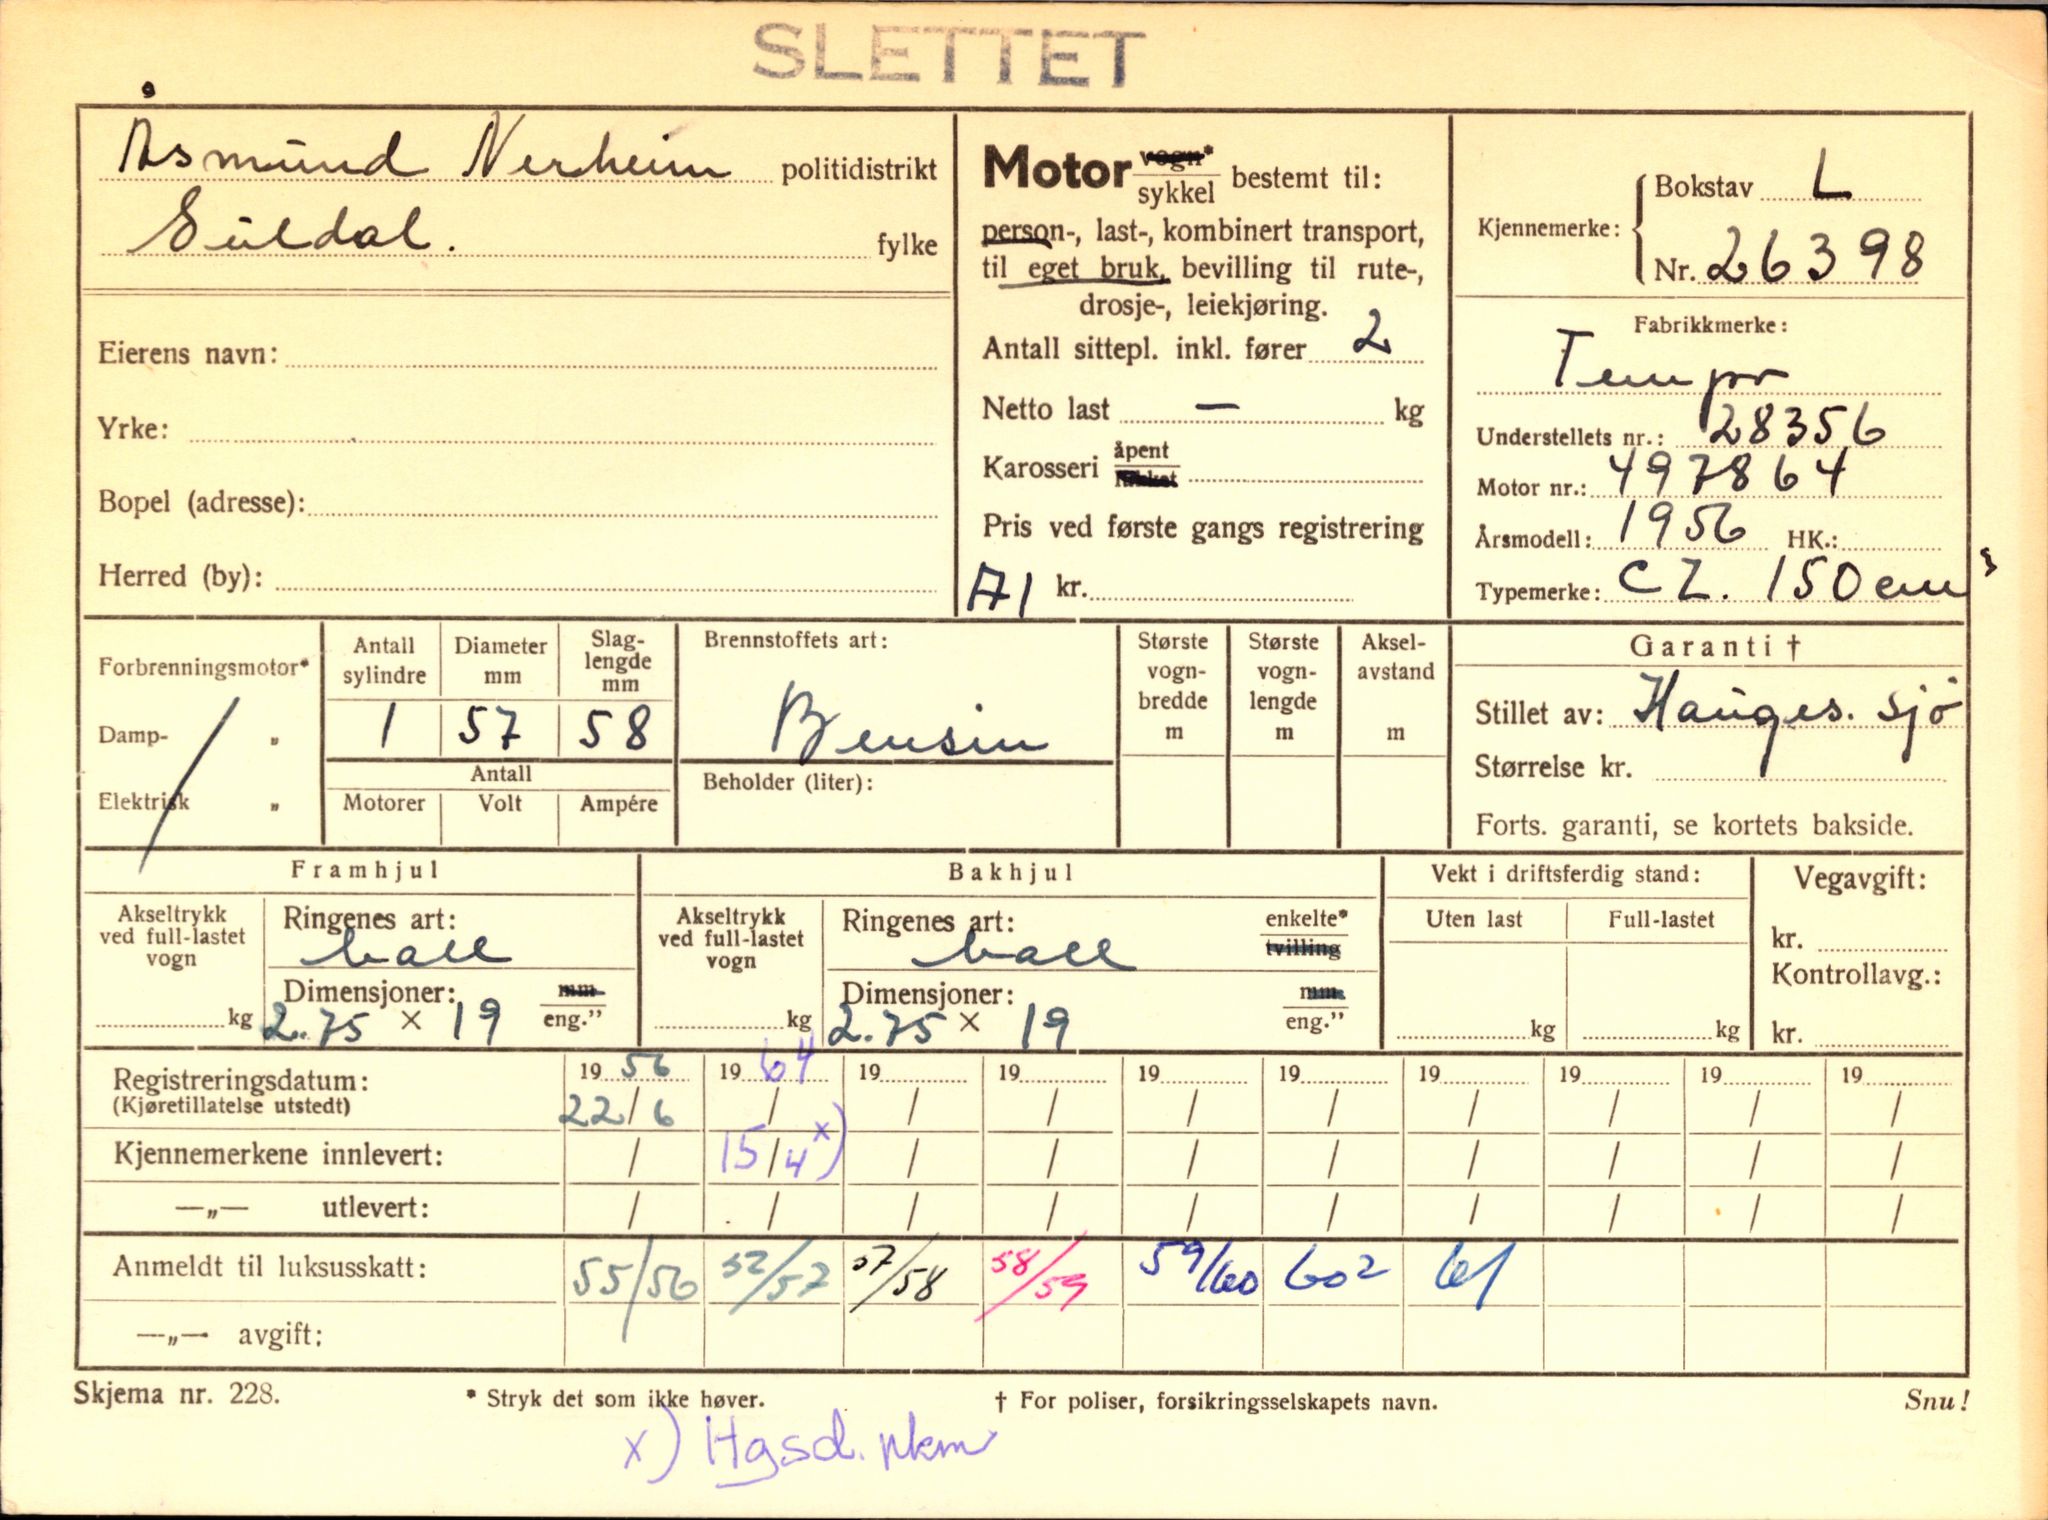 SLETTET
Åsmund Nerheim politidistrikt
Suldal. fylke
Eierens navn:
Yrke:
Bopel (adresse):
Herred (by):
Motor vogn* / sykkel bestemt til:
person-, last-, kombinert transport,
til eget bruk, bevilling til rute-,
drosje-, leiekjøring.
Antall sittepl. inkl. fører 2
Netto last — kg
Karosseri åpent / lukket
Pris ved første gangs registrering
A1 kr.
Kjennemerke: Bokstav L
Nr. 26398
Fabrikkmerke:
Tempo
Understellets nr.: 28356
Motor nr.: 497864
Årsmodell: 1956 HK.:
Typemerke: CZ. 150 cm³
Forbrenningsmotor*
Damp- „
Elektrisk „
Antall sylindre Diameter mm Slag-lengde mm
1 57 58
Antall
Motorer Volt Ampére
Brennstoffets art:
Bensin
Beholder (liter):
Største vogn-bredde m
Største vogn-lengde m
Aksel-avstand m
Garanti †
Stillet av: Hauges. Sjø
Størrelse kr.
Forts. garanti, se kortets bakside.
Framhjul
Akseltrykk ved full-lastet vogn
kg
Ringenes art:
ball
Dimensjoner: mm / eng.”
2.75 × 19
Bakhjul
Akseltrykk ved full-lastet vogn
kg
Ringenes art: enkelte* / tvilling
ball
Dimensjoner: mm / eng.”
2.75 × 19
Vekt i driftsferdig stand:
Uten last Full-lastet
kg kg
Vegavgift:
kr.
Kontrollavg.:
kr.
Registreringsdatum: 19 56 19 64 19 19 19 19 19 19 19 19
(Kjøretillatelse utstedt) 22/6 / / / / / / / / /
Kjennemerkene innlevert: / 15/4 x) / / / / / / / /
—„— utlevert: / / / / / / / / / /
Anmeldt til luksusskatt: 55/56 52/57 57/58 58/59 59/60 602 61
—„— avgift:
Skjema nr. 228. * Stryk det som ikke høver. † For poliser, forsikringsselskapets navn. Snu!
x) Hgsd. pkm